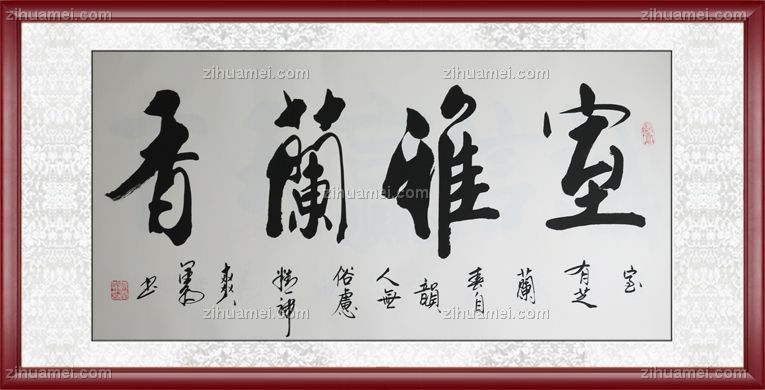 室雅蘭香
室有芝蘭春自韻人無俗慮精神爽
书
zihuamei.com
zihuamei.com
zihuamei.com
zihuamei.com
zihuamei.com
zihuamei.com
zihuamei.com
zihuamei.com
zihuamei.com
zihuamei.com